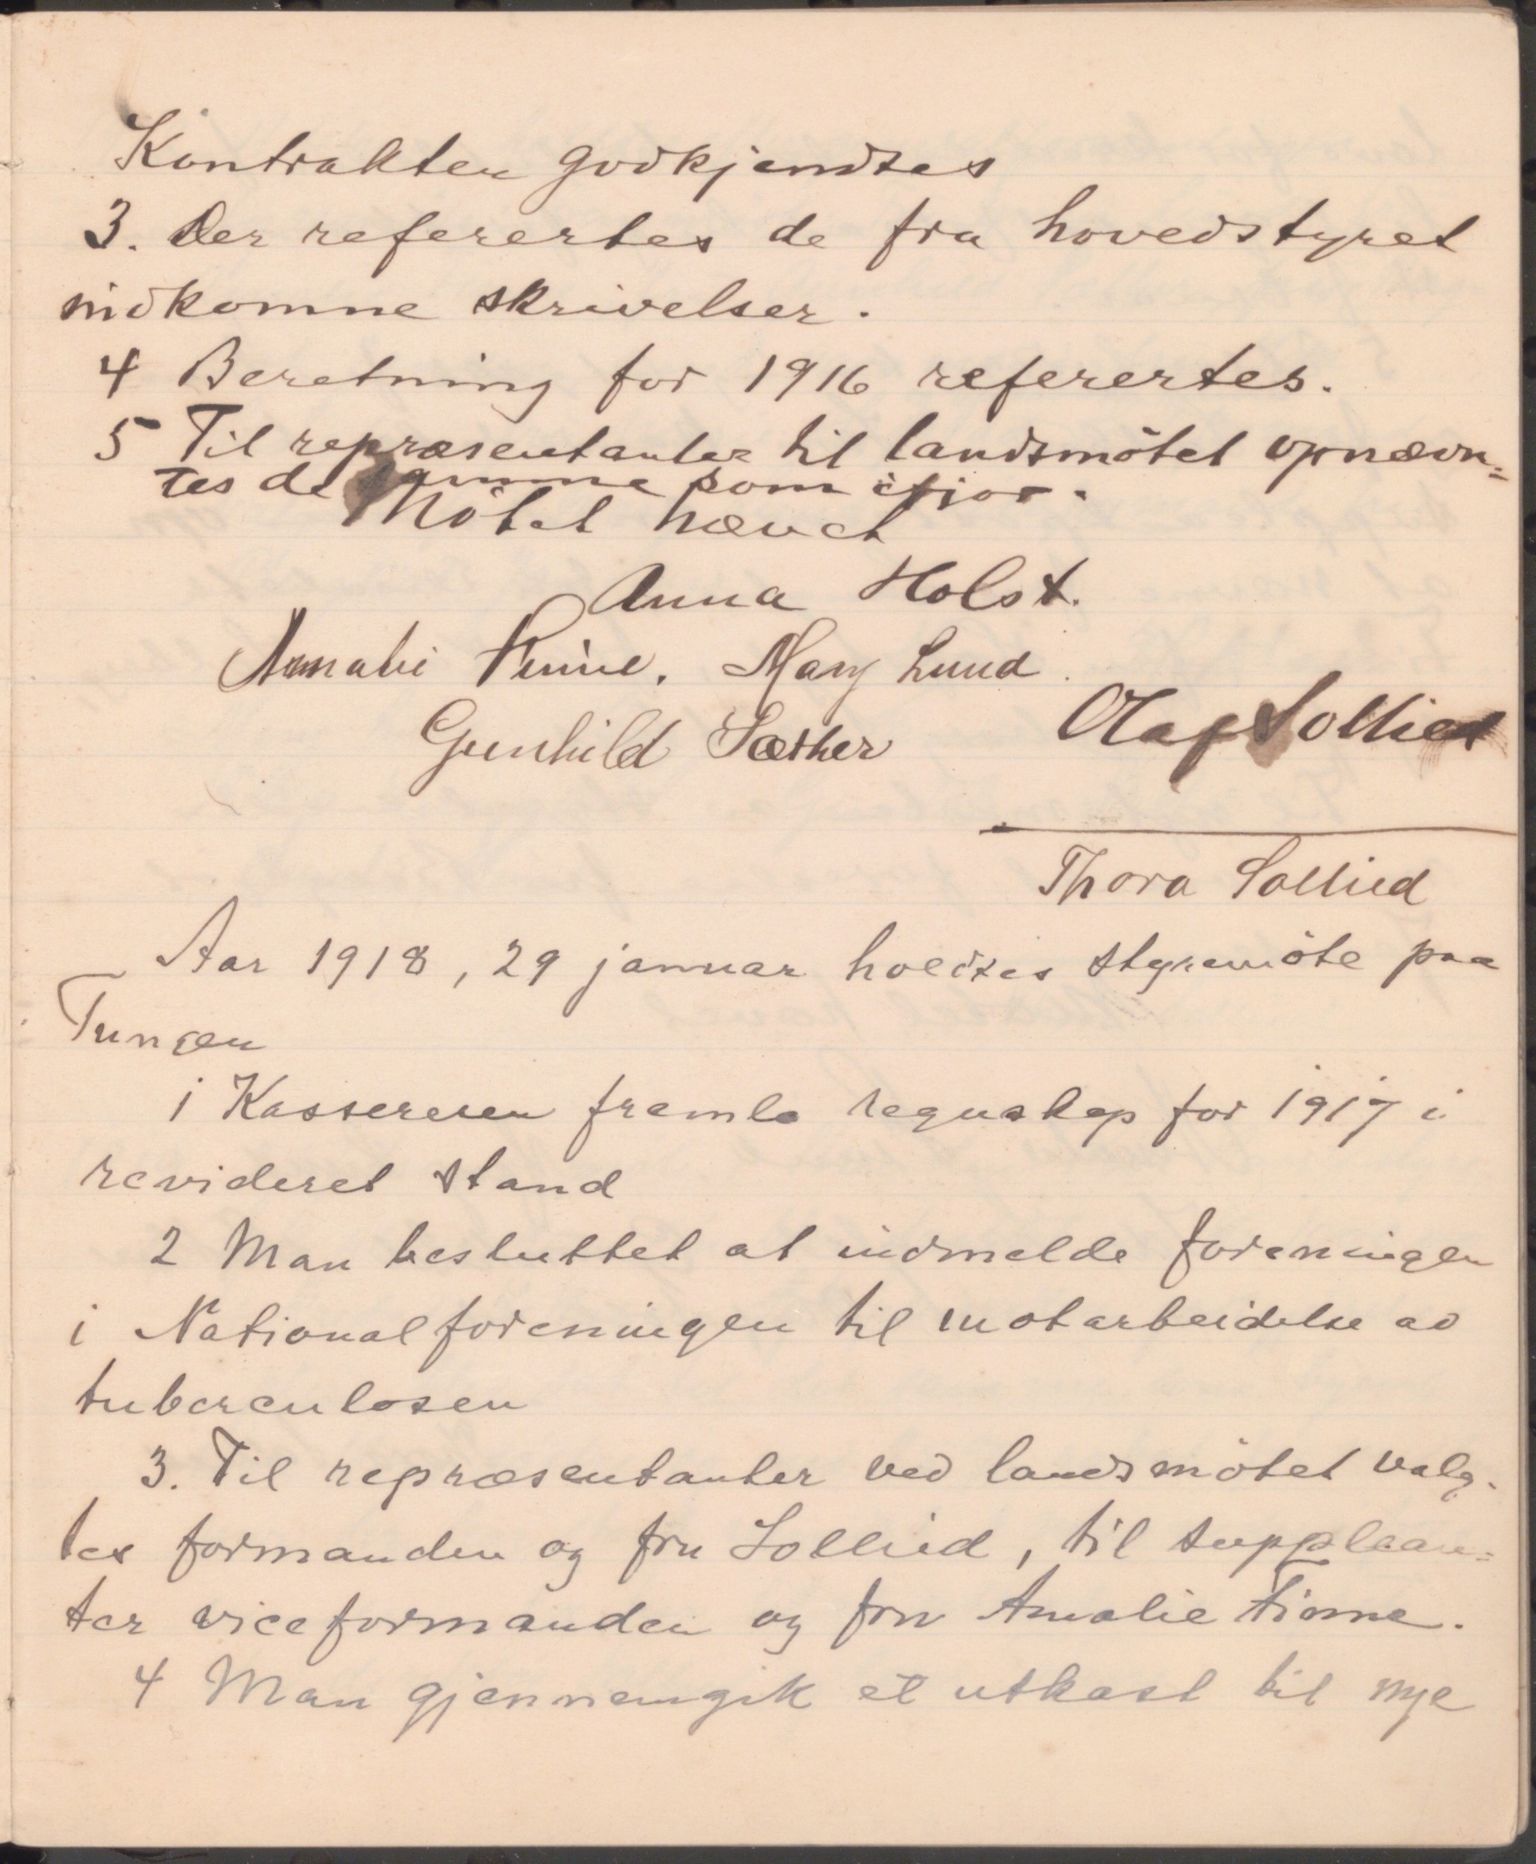 Kontrakten godkjendtes
3. Der referertes de fra hovedstyret
indkomne skrivelser.
4 Beretning for 1916 referertes.
5 Til repræsentanter til landsmötet opnævn=
tes de samme som ifjor.
Mötet hævet
Anna Holst.
Amalie Finne. Mary Lund.
Gunhild Sæther Olaf Sollied
Thora Sollied
Aar 1918, 29 januar holdtes styremöte paa
Tungen
1 Kassereren fremla regnskap for 1917 i
revideret stand
2 Man besluttet at indmelde foreningen
i Nationalforeningen til motarbeidelse av
tuberculosen
3. Til repræsentanter ved landsmötet valg-
tes formanden og fru Sollied, til supplean=
ter viceformanden og frv Amalie Finne.
4 Man gjennemgik et utkast til nye